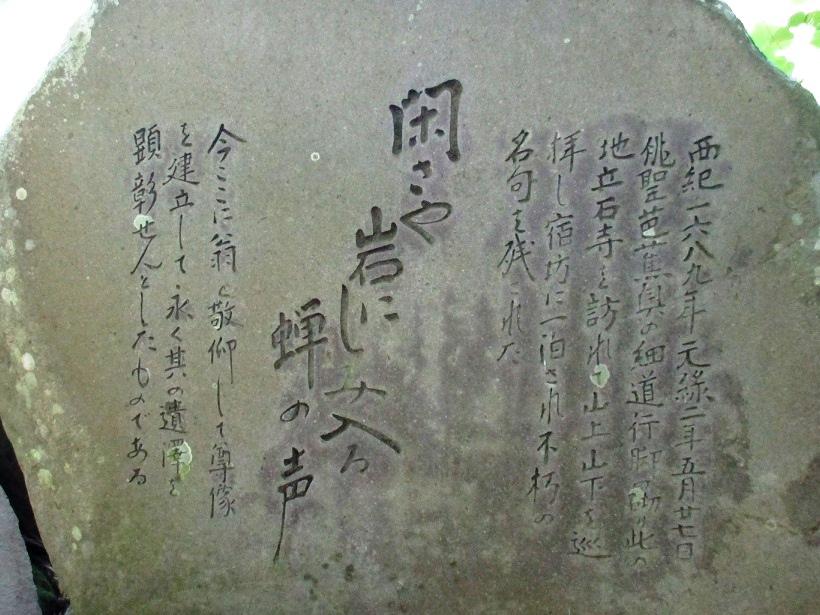 西紀一六八九年元禄二年五月廿七日
俳聖芭蕉奥の細道行脚の砌り此の
地立石寺を訪れて山上山下を巡
拝し宿坊に一泊され不朽の
名句を残された
閑さや
岩にしみ入る
蝉の声
今ここに翁を敬仰して尊像
を建立して永く其の遺澤を
顕彰せんとしたものである